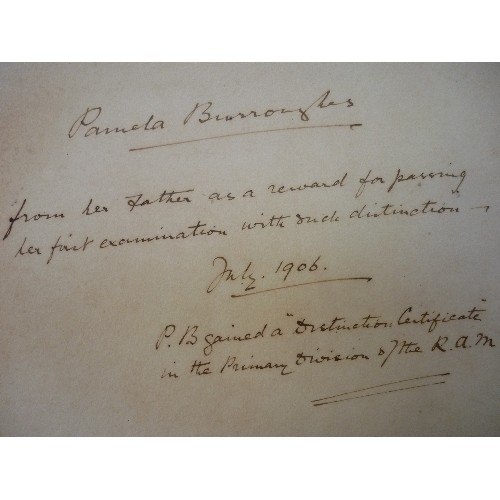 Pamela Burroughes
from her Father as a reward for passing
her first examination with such distinction -
July. 1906.
P. B gained a "Distinction Certificate"
in the Primary Division of the R.A.M